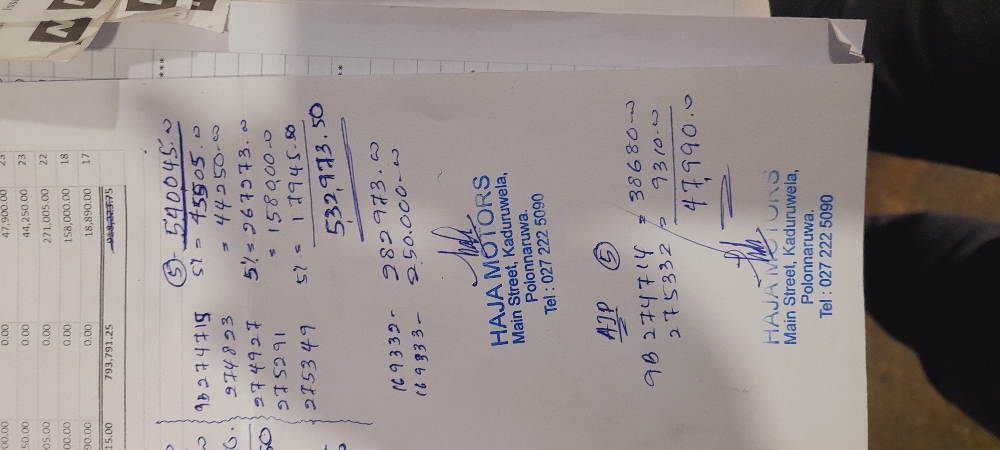 47,900.00 23
50.00 44,250.00 0.00 23
05.00 271,005.00 0.00 22
00.00 158,000.00 0.00 18
90.00 18,890.00 0.00 17
15.00 793,791.25
⑤ - 540,045.00
9B274715 5% = 45505.00
274893 = 44250.00
274927 5% = 267373.00
275291 = 158900.00
275349 5% = 17945.50
532,973.50
169332 - 282973.00
169333 - 250.000.00
HAJA MOTORS
Main Street, Kaduruwela,
Polonnaruwa.
Tel : 027 222 5090
AJP ⑤
9B 274714 = 38680.00
275332 = 9310.00
47,990.00
HAJA MOTORS
Main Street, Kaduruwela,
Polonnaruwa.
Tel : 027 222 5090